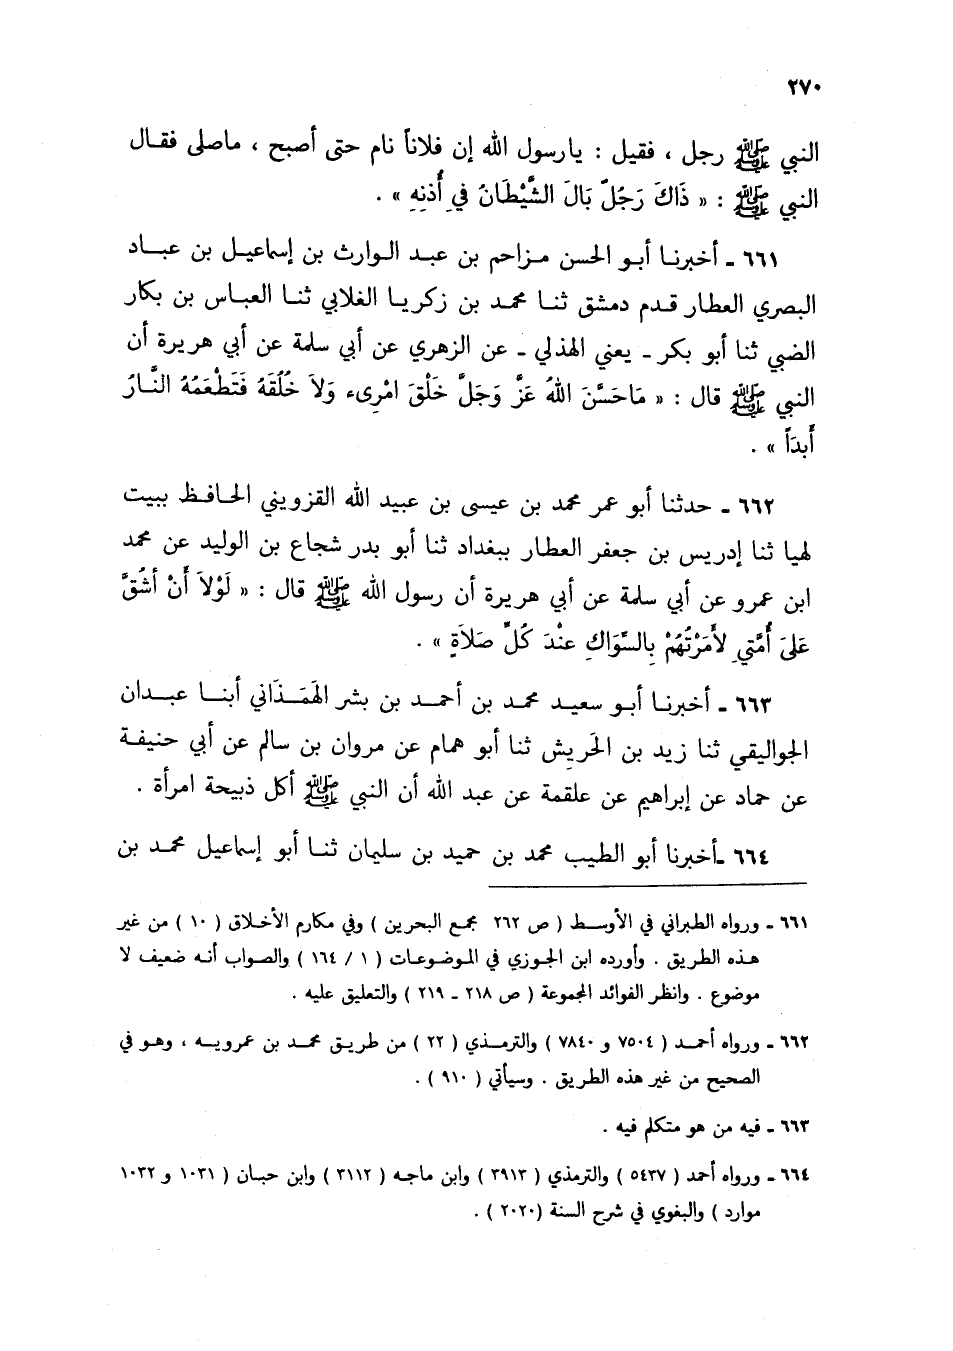 ٢٧٠
النبي ﷺ رجل ، فقيل : يارسول الله إن فلاناً نام حتى أصبح ، ماصلى فقـال
النبي ﷺ : « ذَاكَ رَجُلٌ بَالَ الشَّيْطَانُ فِي أُذنِهِ » .
٦٦١ ـ أخبرنـا أبـو الحسن مـزاحم بن عبـد الـوارث بن إسماعيـل بن عبـاد
البصري العطار قـدم دمشق ثنـا محمد بن زكريـا الغلابي ثنـا العباس بن بكار
الضبي ثنا أبو بكر ـ يعني الهذلي ـ عن الزهري عن أبي سلمة عن أبي هريرة أن
النبي ﷺ قال : « مَاحَسَّنَ اللهُ عَزَّ وَجَلَّ خَلْقَ امْرِىء وَلاَ خُلُقَهُ فَتَطْعَمُهُ النَّارُ
أَبدَاً » .
٦٦٢ ـ حدثنا أبو عمر محمد بن عيسى بن عبيد الله القزويني الحـافـظ ببيت
لهيا ثنا إدريس بن جعفر العطار ببغداد ثنا أبو بدر شجاع بن الوليد عن محمد
ابن عمرو عن أبي سلمة عن أبي هريرة أن رسول الله ﷺ قال : « لَوْلاَ أَنْ أَشُقَّ
عَلىَ أُمَّتيِ لأَمَرْتُهُمْ بِالسَّوَاكِ عنْدَ كُلِّ صَلاَةٍ » .
٦٦٣ ـ أخبرنـا أبـو سعيـد محمـد بن أحمـد بن بشر الهَمَذَاني أبنـا عبـدان
الجواليقي ثنا زيد بن الحَرِيش ثنا أبو همام عن مروان بن سالم عن أبي حنيفـة
عن حماد عن إبراهيم عن علقمة عن عبد الله أن النبي ﷺ أكل ذبيحة امرأة .
٦٦٤ ـأخبرنا أبو الطيب محمد بن حميد بن سليمان ثنـا أبو إسماعيل محمـد بن
٦٦١ ـ ورواه الطبراني في الأوسـط ( ص ٢٦٢ مجمع البحرين ) وفي مكارم الأخـلاق ( ١٠ ) من غير
هـذه الطريق . وأورده ابن الجـوزي في المـوضـوعـات ( ١ / ١٦٤ ) والصـواب أنـه ضعيف لا
موضوع . وانظر الفوائد المجموعة ( ص ٢١٨ ـ ٢١٩ ) والتعليق عليه .
٦٦٢ ـ ورواه أحمـد ( ٧٥٠٤ و ٧٨٤٠ ) والترمـذي ( ٢٢ ) من طريـق محمـد بن عمروبـه ، وهـو في
الصحيح من غير هذه الطريق . وسيأتي ( ٩١٠ ) .
٦٦٣ ـ فيه من هو متكلم فيه .
٦٦٤ ـ ورواه أحمد ( ٥٤٣٧ ) والترمذي ( ٣٩١٣ ) وابن ماجـه ( ٣١١٢ ) وابن حبـان ( ١٠٣١ و ١٠٣٢
موارد ) والبغوي في شرح السنة (٢٠٢٠ ) .